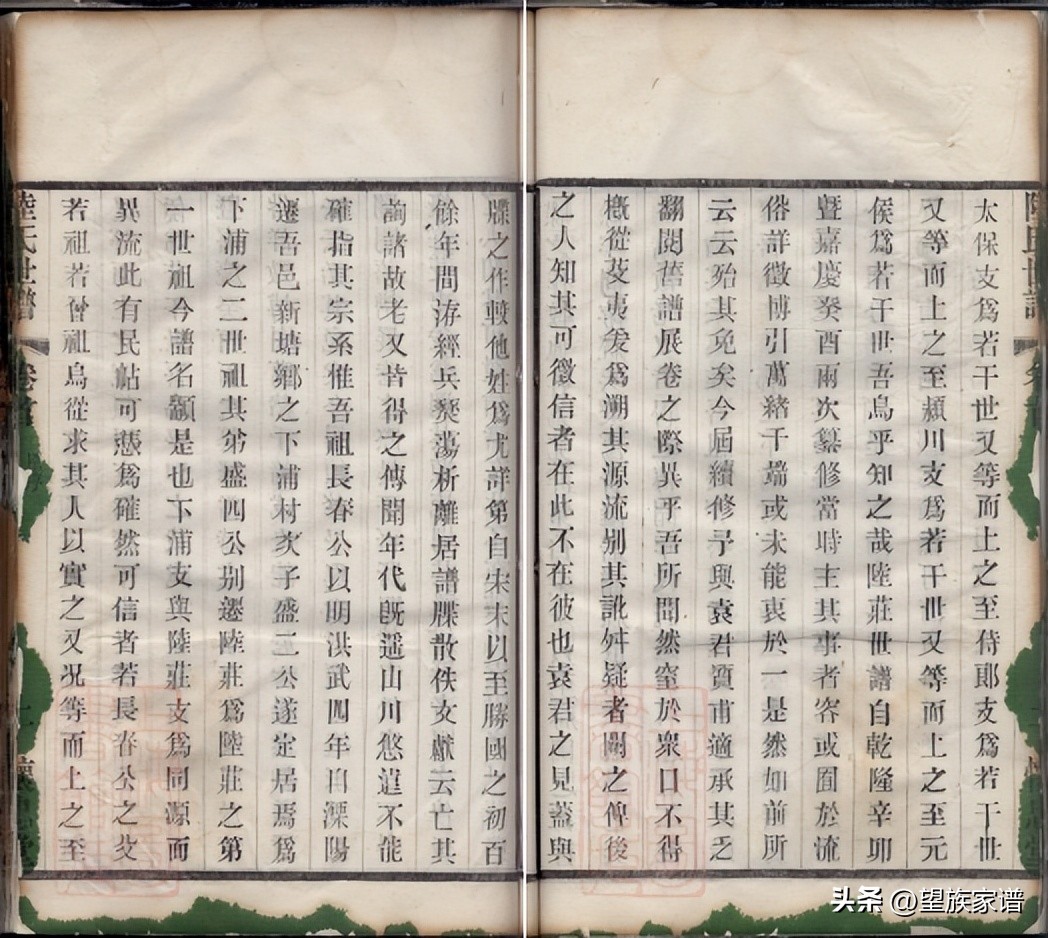 牒之作較他姓爲尤詳第自宋末以至勝國之初百
餘年間洊經兵燹蕩析離居譜牒散佚文獻云亡其
詢諸故老又皆得之傳聞年代旣遥山川悠邈不能
確指其宗系惟吾祖長春公以明洪武四年自溧陽
遷吾邑新塘鄉之下浦村次子盛二公遂定居焉爲
下浦之二世祖其弟盛四公别遷陸莊爲陸莊之第
一世祖今譜名顓是也下浦支與陸莊支爲同源而
異流此有民帖可憑爲確然可信者若長春公之父
若祖若曾祖烏從求其人以實之又况等而上之至
陸氏世譜 卷首
太保支爲若干世又等而上之至侍郎支爲若干世
又等而上之至潁川支爲若干世又等而上之至元
侯爲若干世吾烏乎知之哉陸莊世譜自乾隆辛卯
曁嘉慶癸酉兩次纂修當時主其事者容或囿於流
俗詳徵博引萬緒千端或未能衷於一是然如前所
云云殆其免矣今屆續修予與袁君質甫適承其乏
翻閱舊譜展卷之際異乎吾所聞然窒於衆口不得
概從芟夷爰爲溯其源流别其訛舛疑者闕之俾後
之人知其可徵信者在此不在彼也袁君之見蓋與
头条 @望族家谱